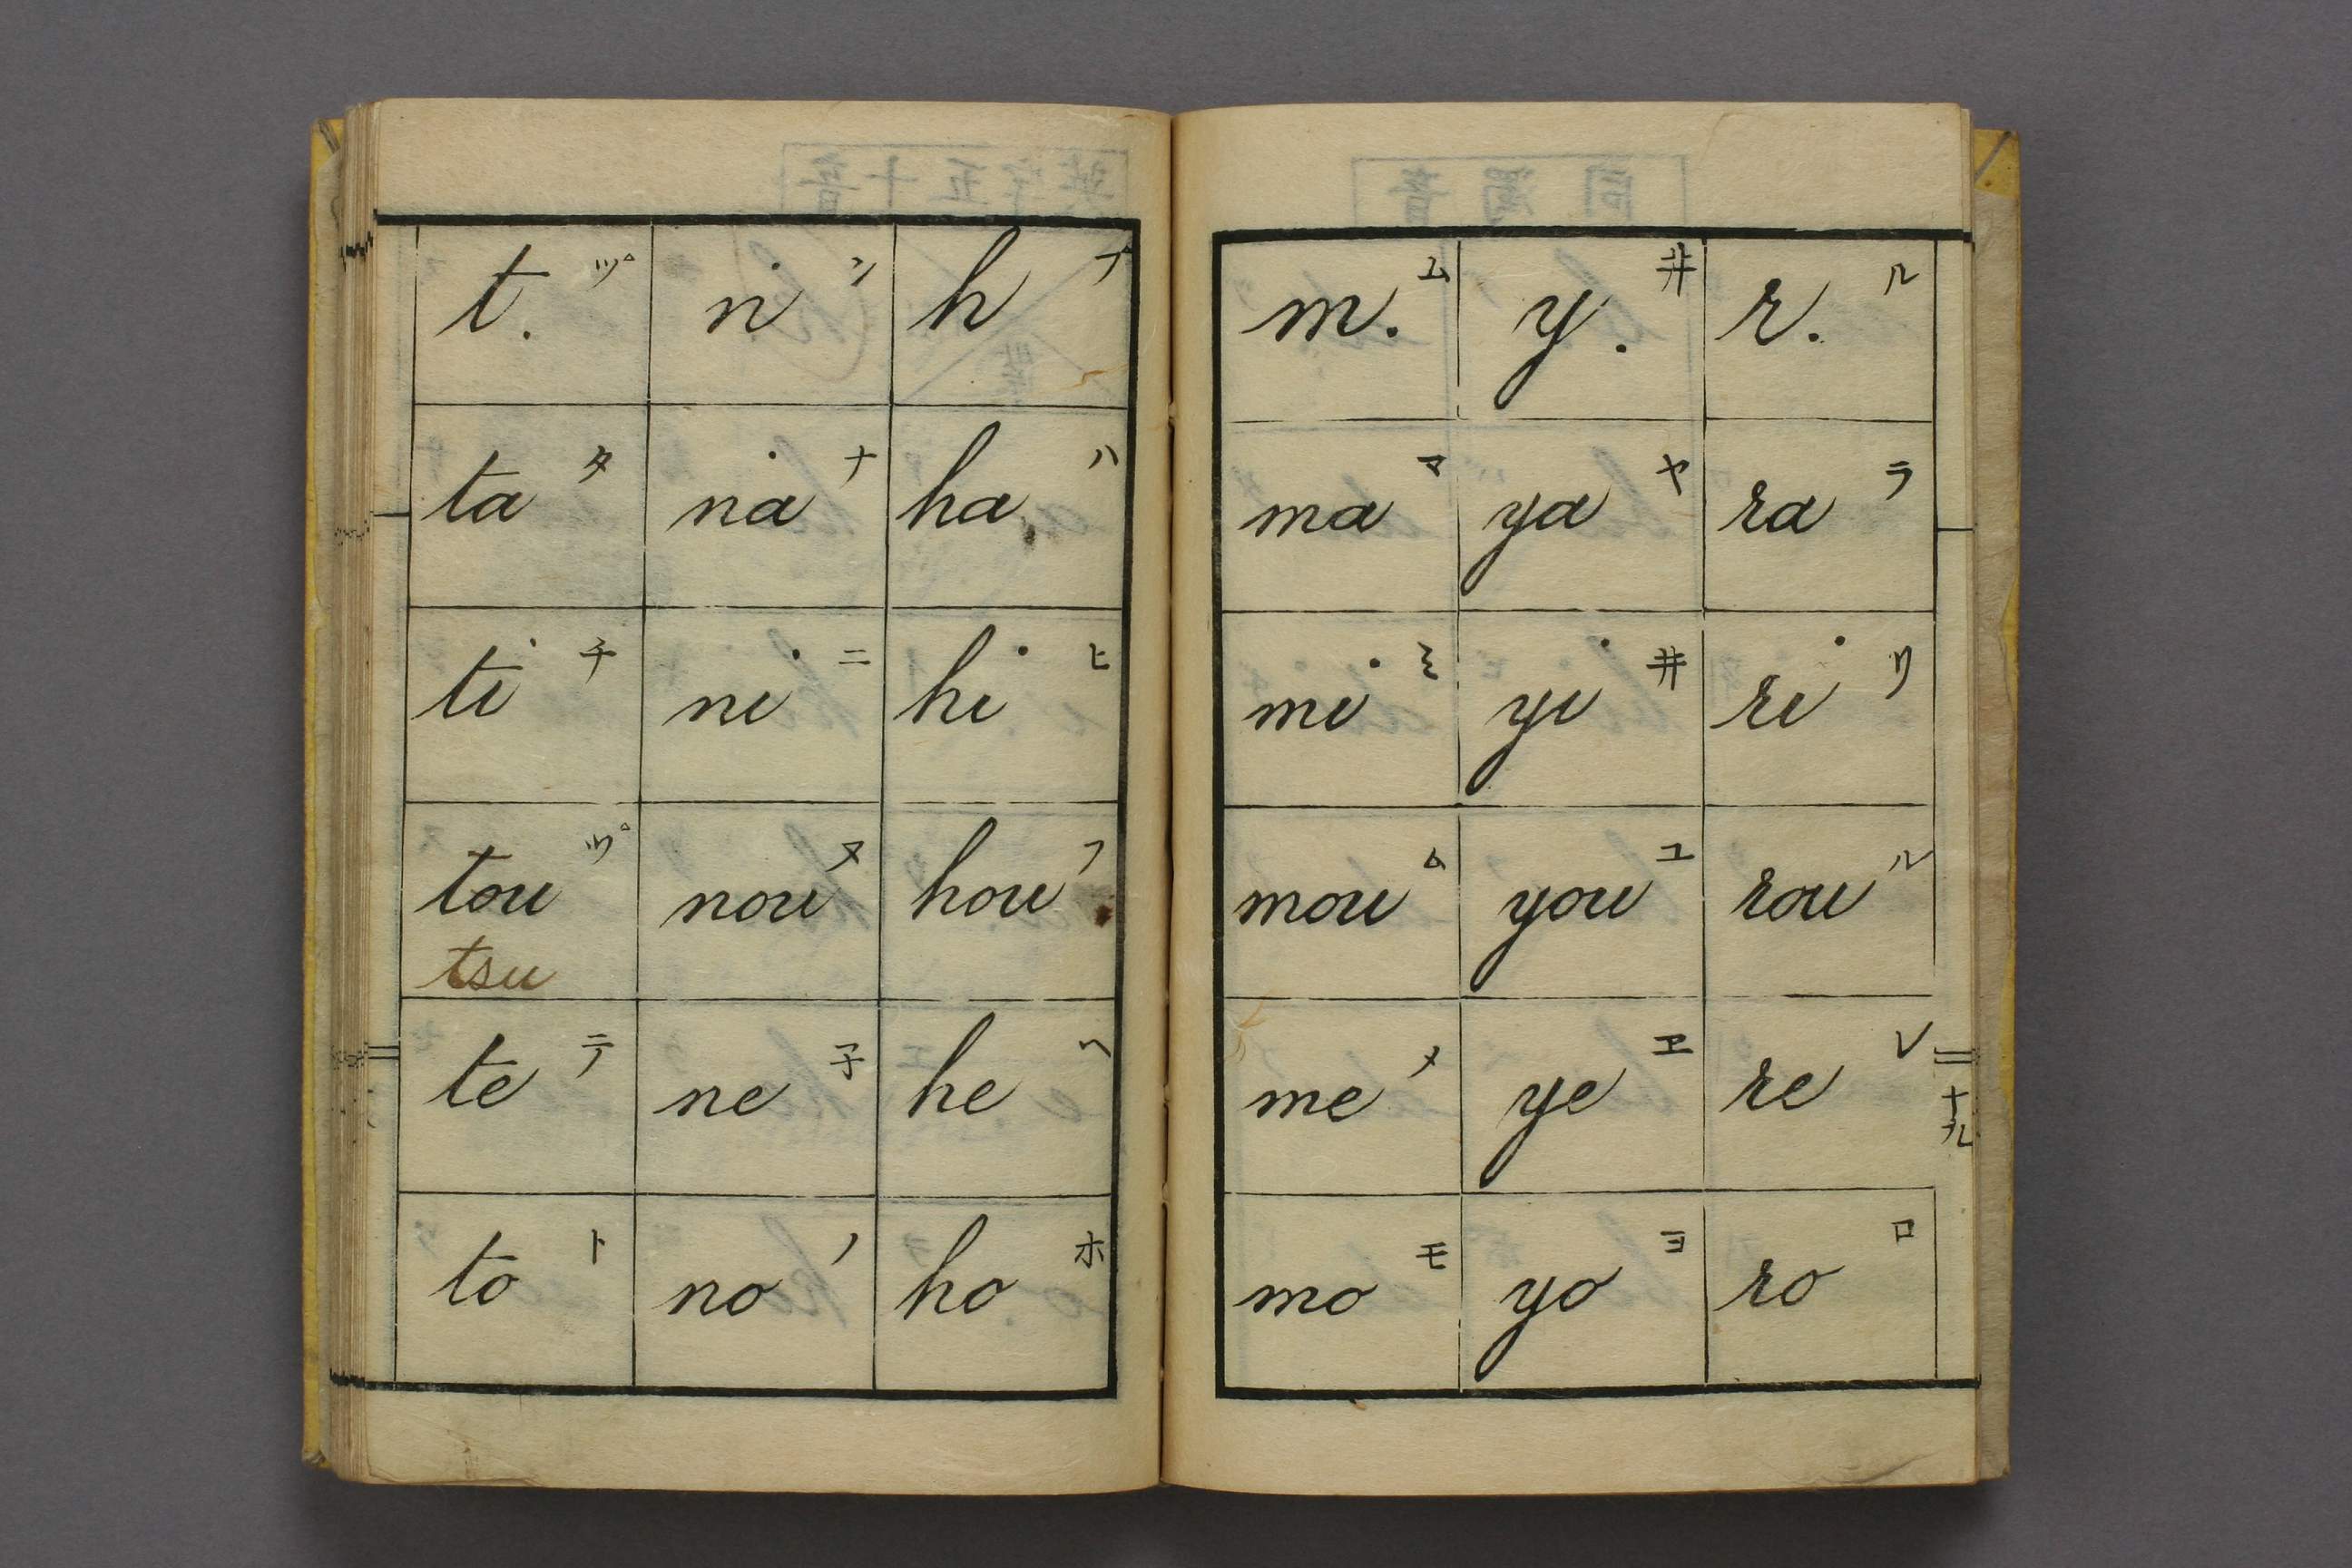 t. ツ゚ n ン h フ
ta タ na ナ ha ハ
ti チ ni ニ hi ヒ
tou ツ゚ nou ヌ hou フ
tsu
te テ ne 子 he ヘ
to ト no ノ ho ホ
m. ム y. 井 r. ル
ma マ ya ヤ ra ラ
mi ミ yi 井 ri リ
mou ム you ユ rou ル
me メ ye ヱ re レ
mo モ yo ヨ ro ロ
十九